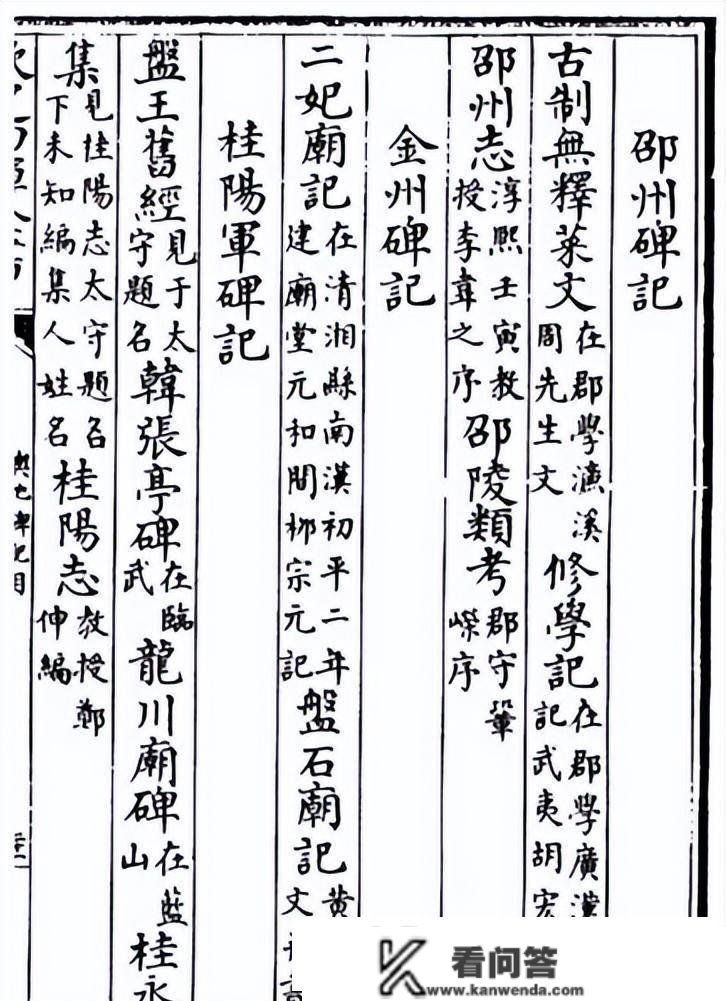 邵州碑記
古制無釋菜文在郡學濂溪周先生文　修學記在郡學廣漢記武夷胡宏
邵州志淳熙壬寅教授李韋之序　邵陵類考郡守鞏嶸序
金州碑記
二妃廟記在清湘縣南漢初平二年建廟堂元和間柳宗元記　盤石廟記黄文
桂陽軍碑記
盤王舊經見于太守題名　韓張亭碑在臨武　龍川廟碑在藍山　桂永
集見桂陽志太守題名下未知編集人姓名　桂陽志教授鄭伸編
看问答
www.kanwenda.com